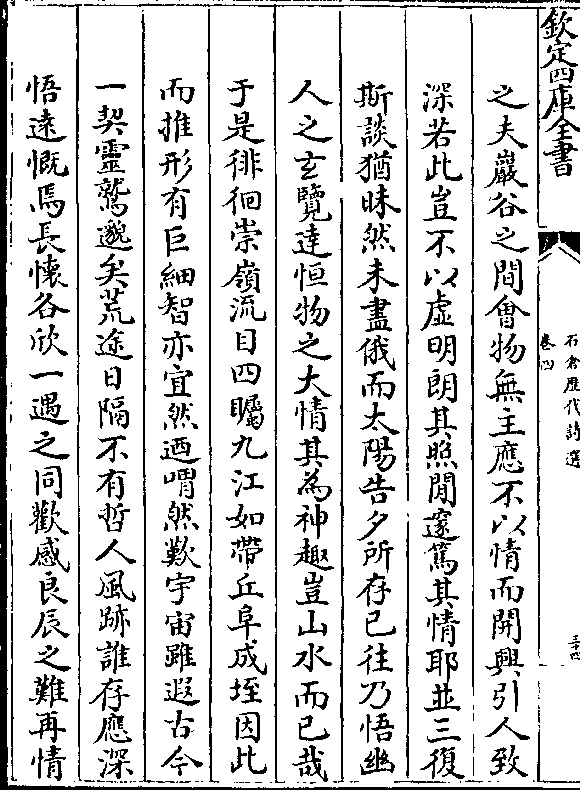 欽定四庫全書
石倉歷代詩選
卷四
三十四
之夫巖谷之間會物無主應不以情而開興引人致
深若此豈不以虛明朗其照閒邃篤其情耶並三復
斯談猶昧然未盡俄而太陽告夕所存已往乃悟幽
人之玄覽達恒物之大情其為神趣豈山水而已哉
于是徘徊崇嶺流目四矚九江如帶丘阜成垤因此
而推形有巨細智亦宜然迺喟然歎宇宙雖遐古今
一契靈鷲邈矣荒途日隔不有哲人風跡誰存應深
悟遠慨焉長懷各欣一遇之同歡感良辰之難再情